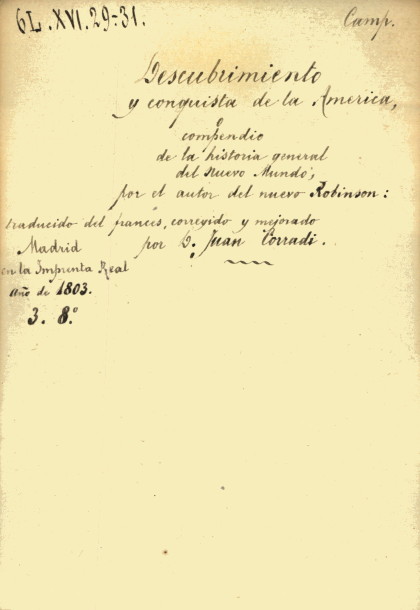 6L.XVI.29-31.
Camp.
Descubrimiento
y conquista de la America,
o
compendio
de la historia general
del Nuevo Mundo,
por el autor del nuevo Robinson:
traducido del francés, corregido y mejorado
por D. Juan Corradi.
Madrid
en la Imprenta Real
año de 1803.
3. 8.º